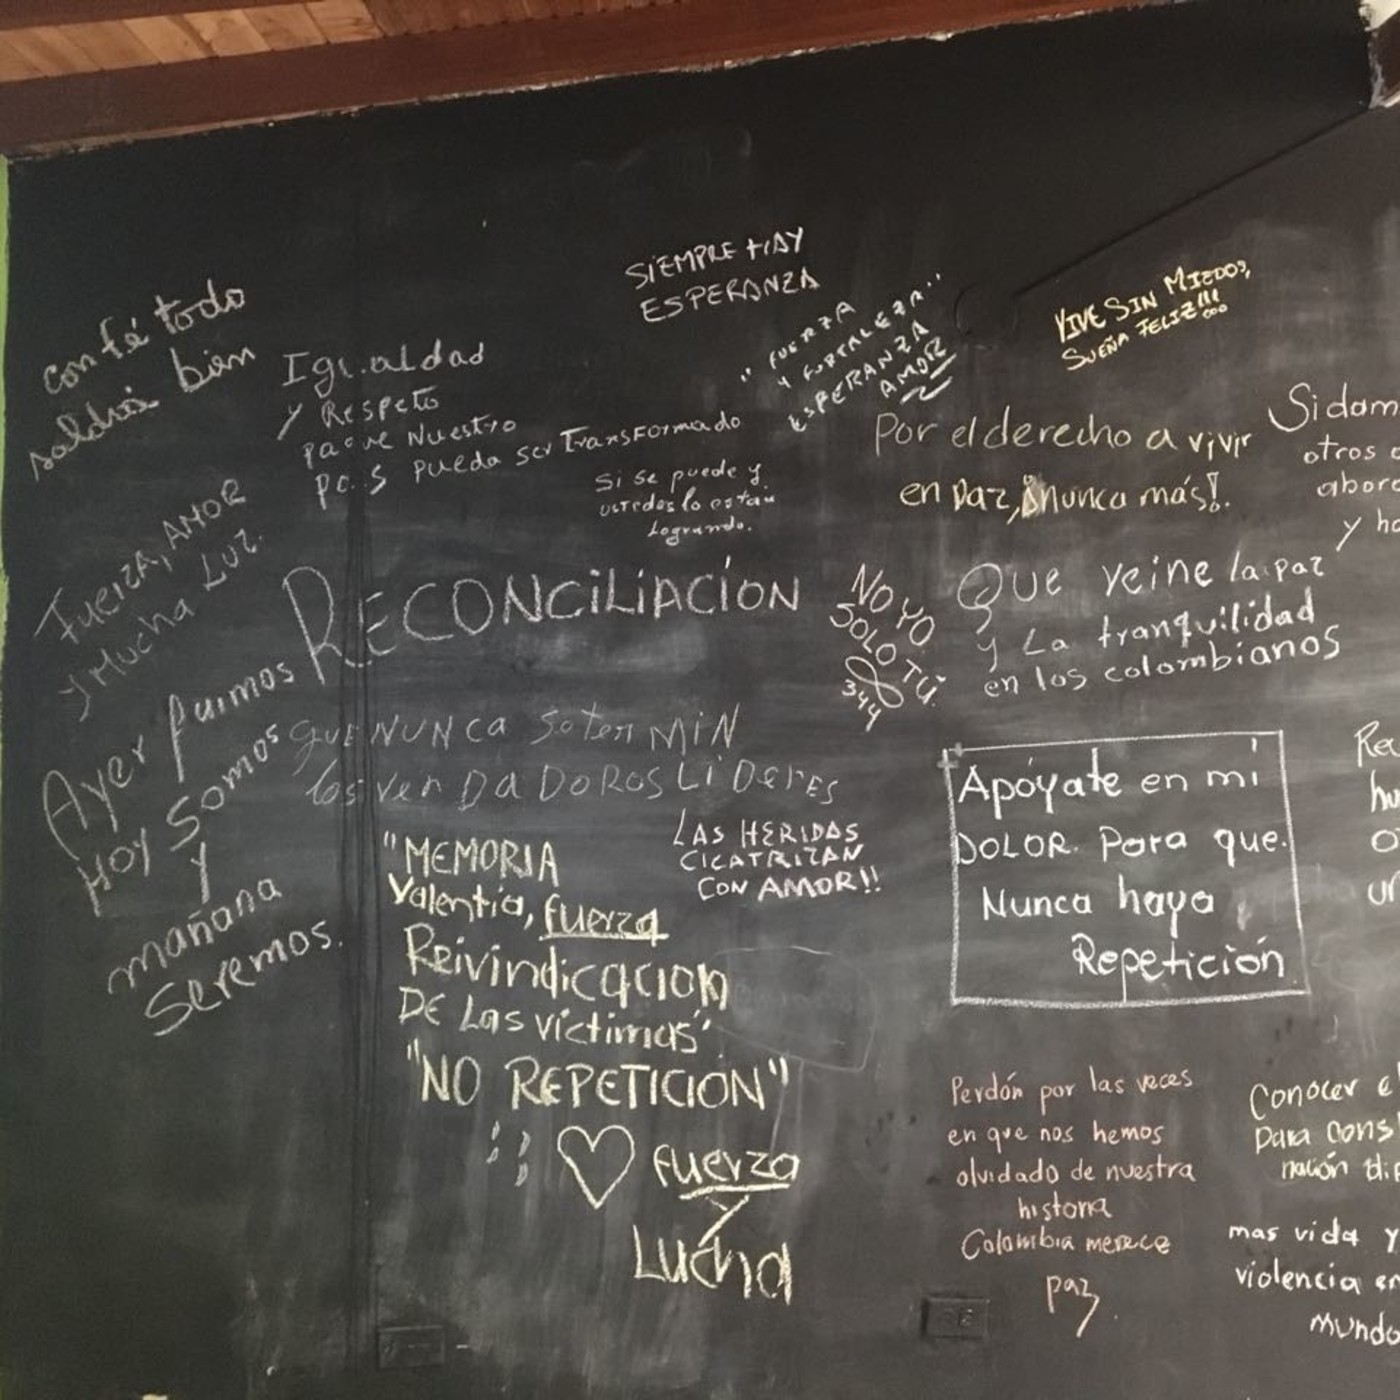 con fé todo
saldrá bien
Igualdad
y Respeto
pa que Nuestro
pais pueda ser Transformado
SIEMPRE HAY
ESPERANZA
"FUERZA
Y FORTALEZA"
ESPERANZA
AMOR
VIVE SIN MIEDOS,
SUEÑA FELIZ!!!
Si se puede y
ustedes lo estan
logrando.
Por el derecho a vivir
en paz, ¡Nunca más!.
Sidam
otros
abord
y ha
FuerzA, AMOR
y Mucha Luz.
RECONCiLiACIÓN
NO YO
SOLO TÚ.
344
Que reine la paz
y La tranquilidad
en los colombianos
Ayer fuimos
Hoy Somos
y
mañana
seremos.
que NUNCa se termiN
los verDaDoros LiDeres
LAS HERIDAS
CICATRIZAN
CON AMOR!!
"MEMORIA
Valentia, fuerza
Reivindicacion
DE Las victimas"
"NO REPETICION"
fuerza
y
Lucha
Apóyate en mi
DOLOR. Para que.
Nunca haya
Repetición
Perdón por las veces
en que nos hemos
olvidado de nuestra
historia
Colombia merece
paz
Conocer el
para cons
nación
mas vida y
violencia en
mundo